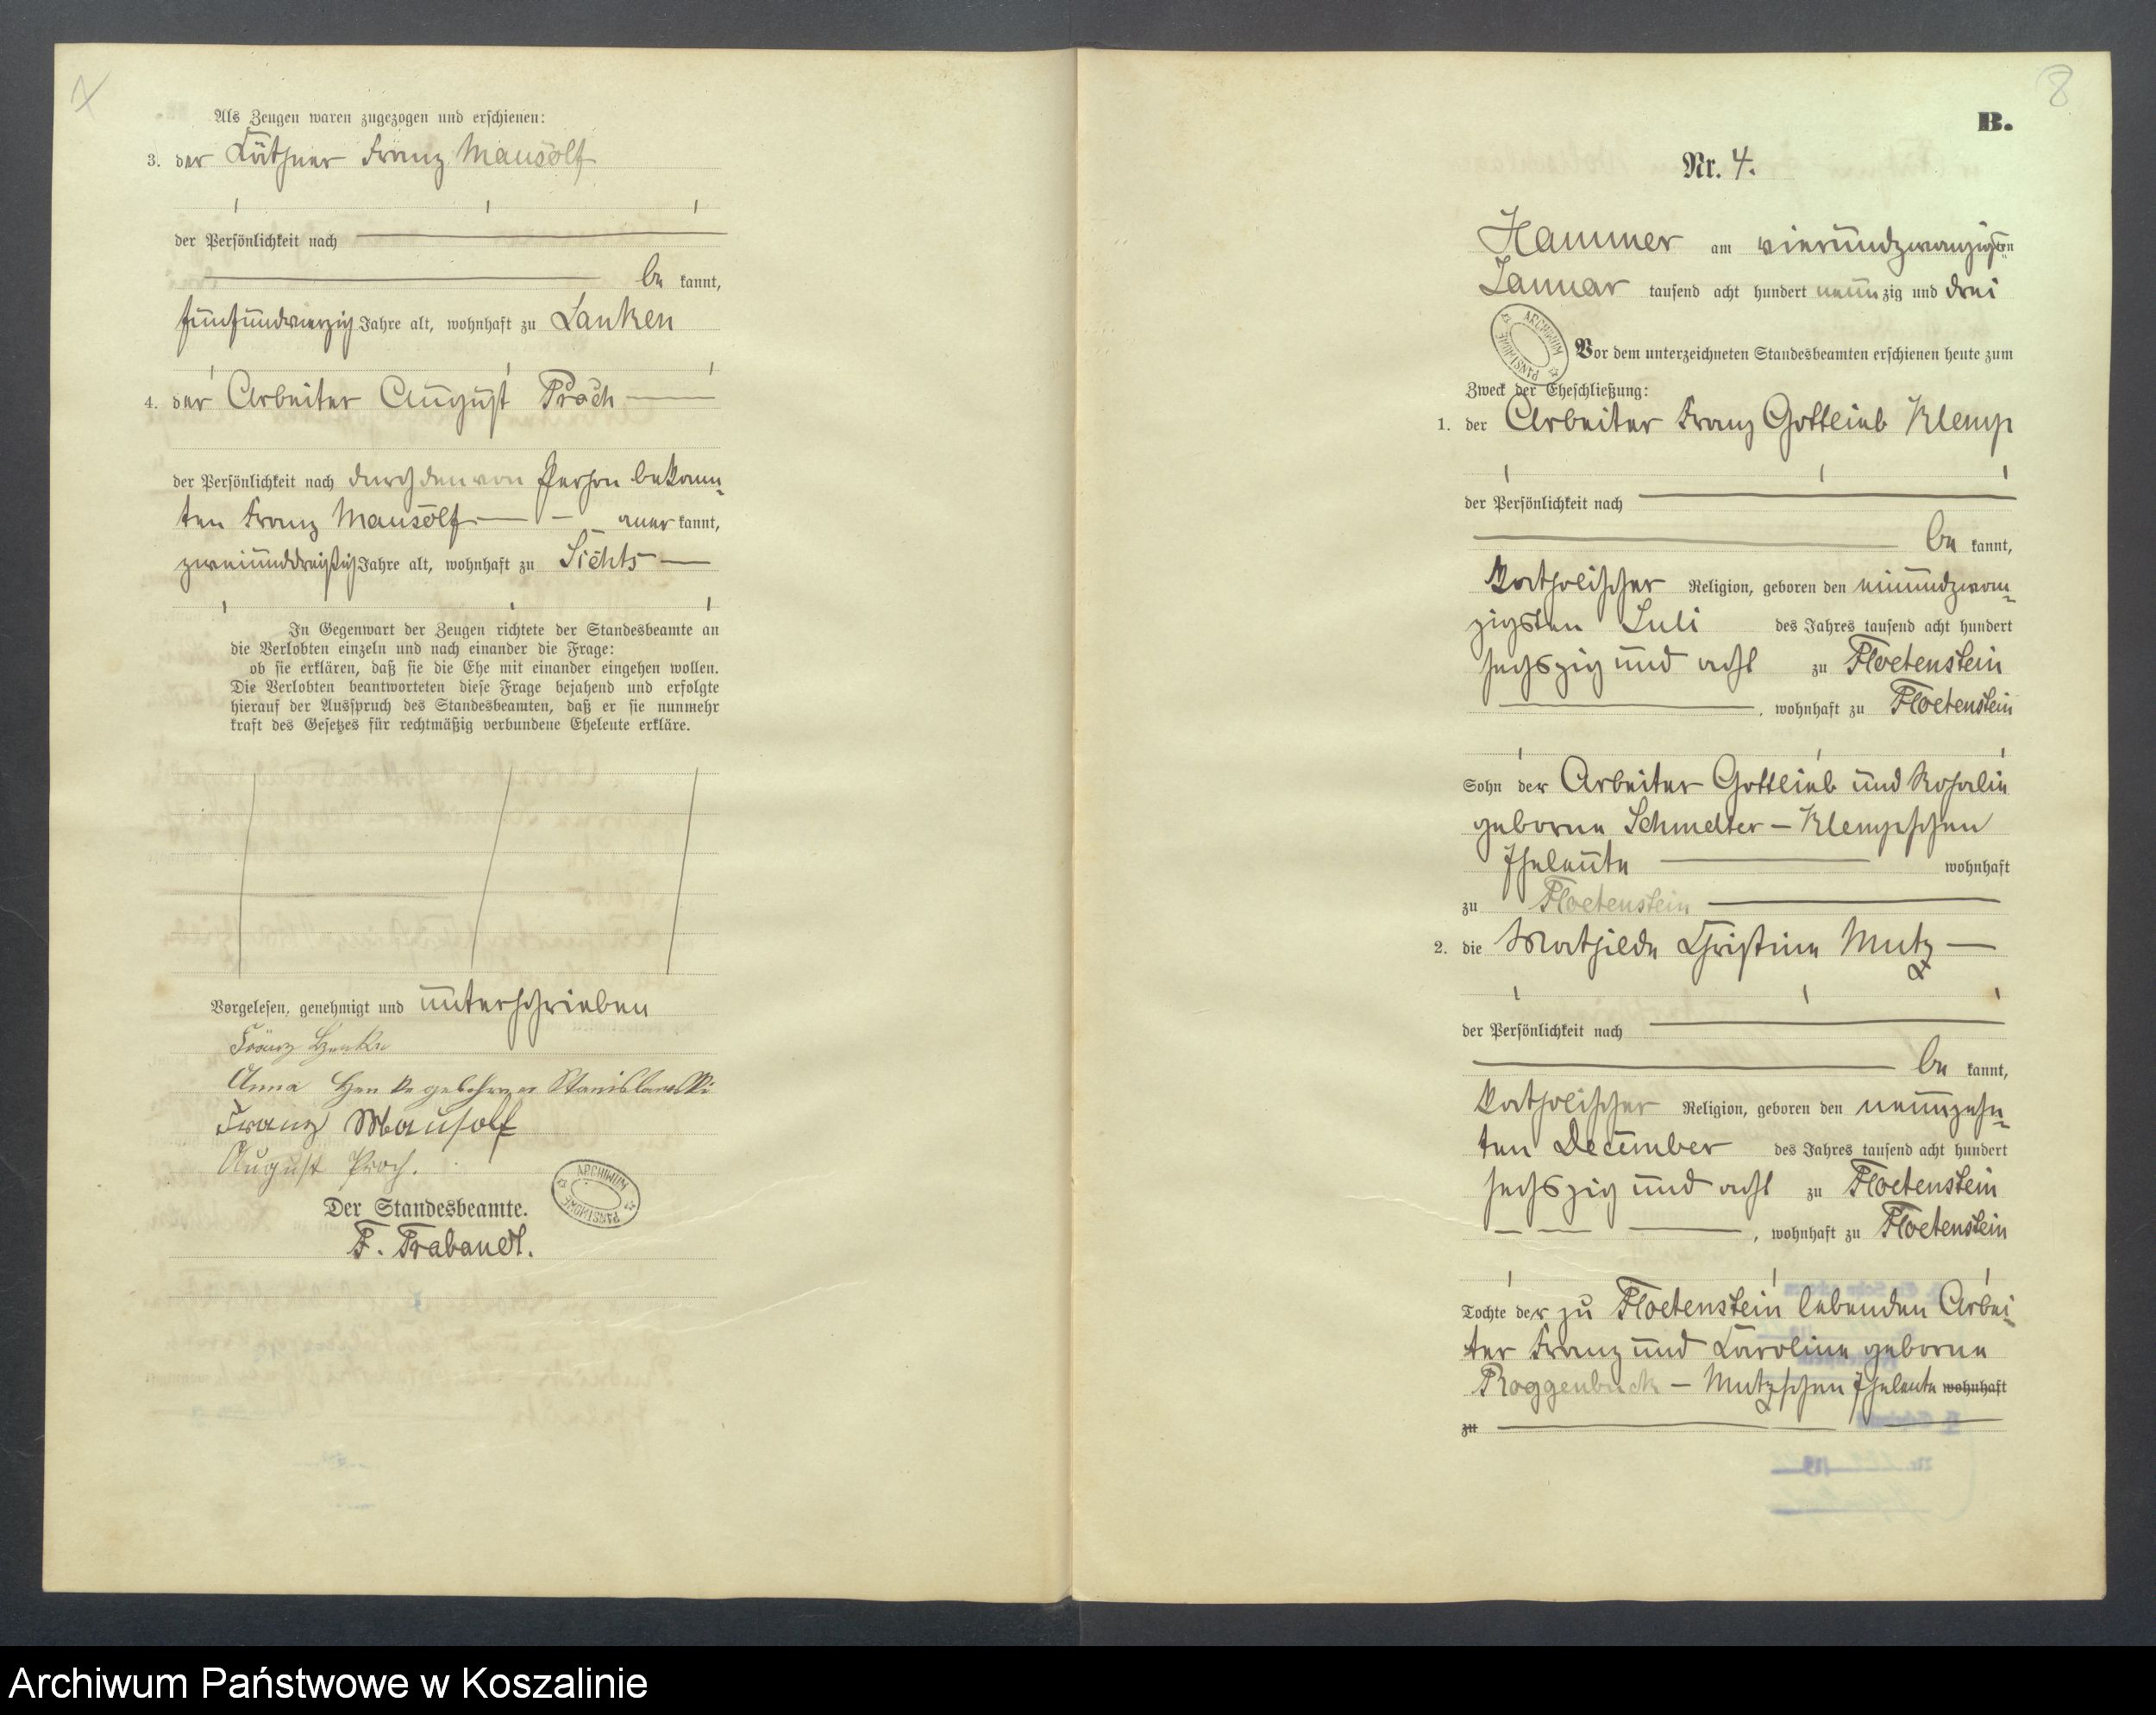 7
Als Zeugen waren zugezogen und erschienen:
3. der Käthner Franz Mausolf
der Persönlichkeit nach
be kannt,
fünfundvierzig Jahre alt, wohnhaft zu Lanken
4. der Arbeiter August Proch
der Persönlichkeit nach durch den von Person bekann-
ten Franz Mausolf aner kannt,
zweiunddreißig Jahre alt, wohnhaft zu Sichts
In Gegenwart der Zeugen richtete der Standesbeamte an
die Verlobten einzeln und nach einander die Frage:
ob sie erklären, daß sie die Ehe mit einander eingehen wollen.
Die Verlobten beantworteten diese Frage bejahend und erfolgte
hierauf der Ausspruch des Standesbeamten, daß er sie nunmehr
kraft des Gesetzes für rechtmäßig verbundene Eheleute erkläre.
Vorgelesen, genehmigt und unterschrieben
Franz
Anna Stanislawski
Franz Mausolf
August Proch.
ARCHIWUM PAŃSTWOWE
Der Standesbeamte.
F. Trabandt.
8
B.
Nr. 4.
Hammer am vierundzwanzigsten
Januar tausend acht hundert neunzig und drei
ARCHIWUM PAŃSTWOWE
Vor dem unterzeichneten Standesbeamten erschienen heute zum
Zweck der Eheschließung:
1. der Arbeiter Franz Gottlieb Klemp
der Persönlichkeit nach
be kannt,
katholischer Religion, geboren den einundzwan-
zigsten Juli des Jahres tausend acht hundert
sechszig und acht zu Floetenstein
, wohnhaft zu Floetenstein
Sohn der Arbeiter Gottlieb und Rosalie
geborne Schmelter – Klempschen
Eheleute wohnhaft
zu Floetenstein
2. die Mathilde Christine Mutz
der Persönlichkeit nach
be kannt,
katholischer Religion, geboren den neunzehn-
ten December des Jahres tausend acht hundert
sechszig und acht zu Floetenstein
, wohnhaft zu Floetenstein
Tochte der zu Floetenstein lebenden Arbei-
ter Franz und Caroline geborne
Roggenbuck – Mutzschen Eheleute wohnhaft
zu
Archiwum Państwowe w Koszalinie